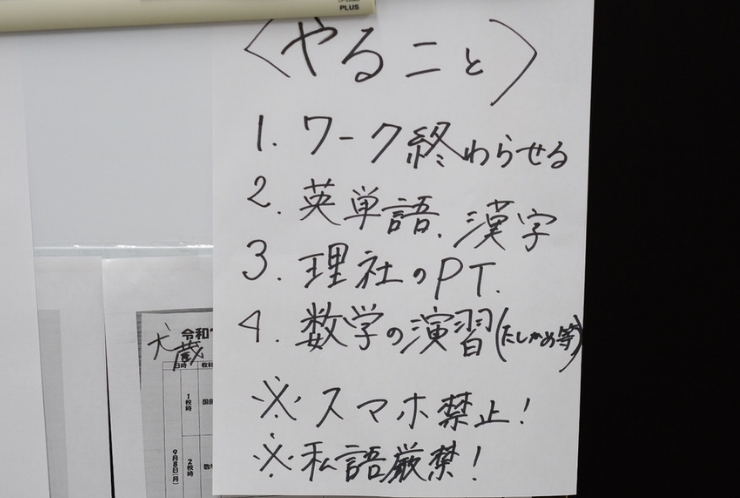 PLUS
〈やること〉
1. ワーク終わらせる
2. 英単語、漢字
3. 理社のPT.
4. 数学の演習(たしかめ等)
※スマホ禁止!
※私語厳禁!
令和
大蔵
日時
1校時
9月8日(月)
2校時